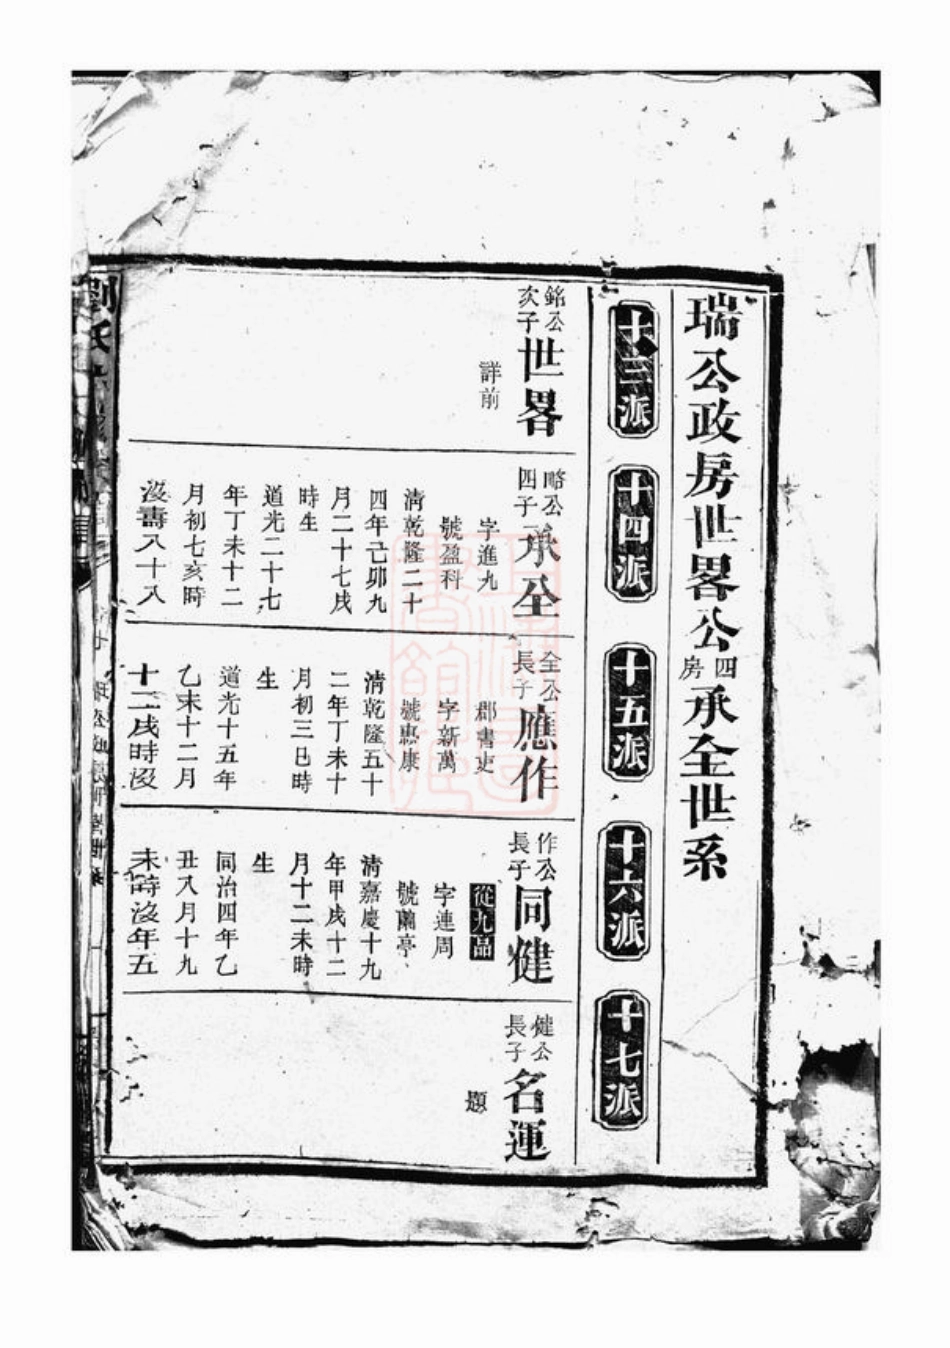 瑞公政房世畧公四房承全世系
十三派
十四派
十五派
十六派
十七派
銘公次子世畧
詳前
略公四子承全
字進九
號盈科
清乾隆二十
四年己卯九
月二十七戌
時生
道光二十七
年丁未十二
月初七亥時
沒壽八十八
全公長子應作
郡書吏
字新萬
號惠康
清乾隆五十
二年丁未十
月初三巳時
生
道光十五年
乙未十二月
十二戌時沒
作公長子同健
從九品
字連周
號蘭亭
清嘉慶十九
年甲戌十二
月十二未時
生
同治四年乙
丑八月十九
未時沒年五
健公長子名運
題
劉氏